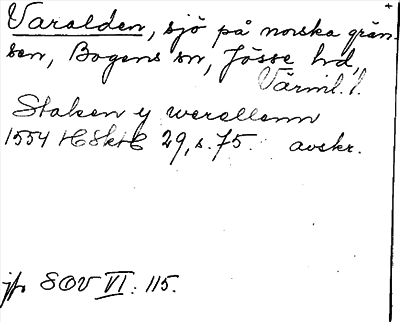 Varalden, sjö på norska grän-
sen, Bogens sn, Jösse hd,
Värml. l.
Staken y werellenn
1554 HSkH 29, s. 75. avskr.
jfr SOV VI: 115.